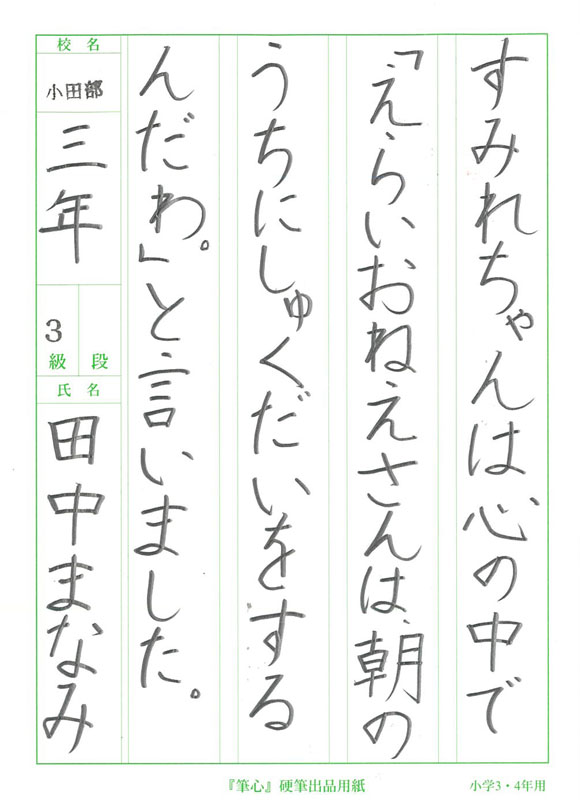 すみれちゃんは心の中で
「えらいおねえさんは、朝の
うちにしゅくだいをする
んだわ。」と言いました。
校名
小田部
三年
3
級 段
氏名
田中まなみ
『筆心』硬筆出品用紙
小学3・4年用